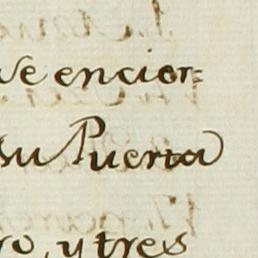 se encier=
su Puerta
ro, y tres